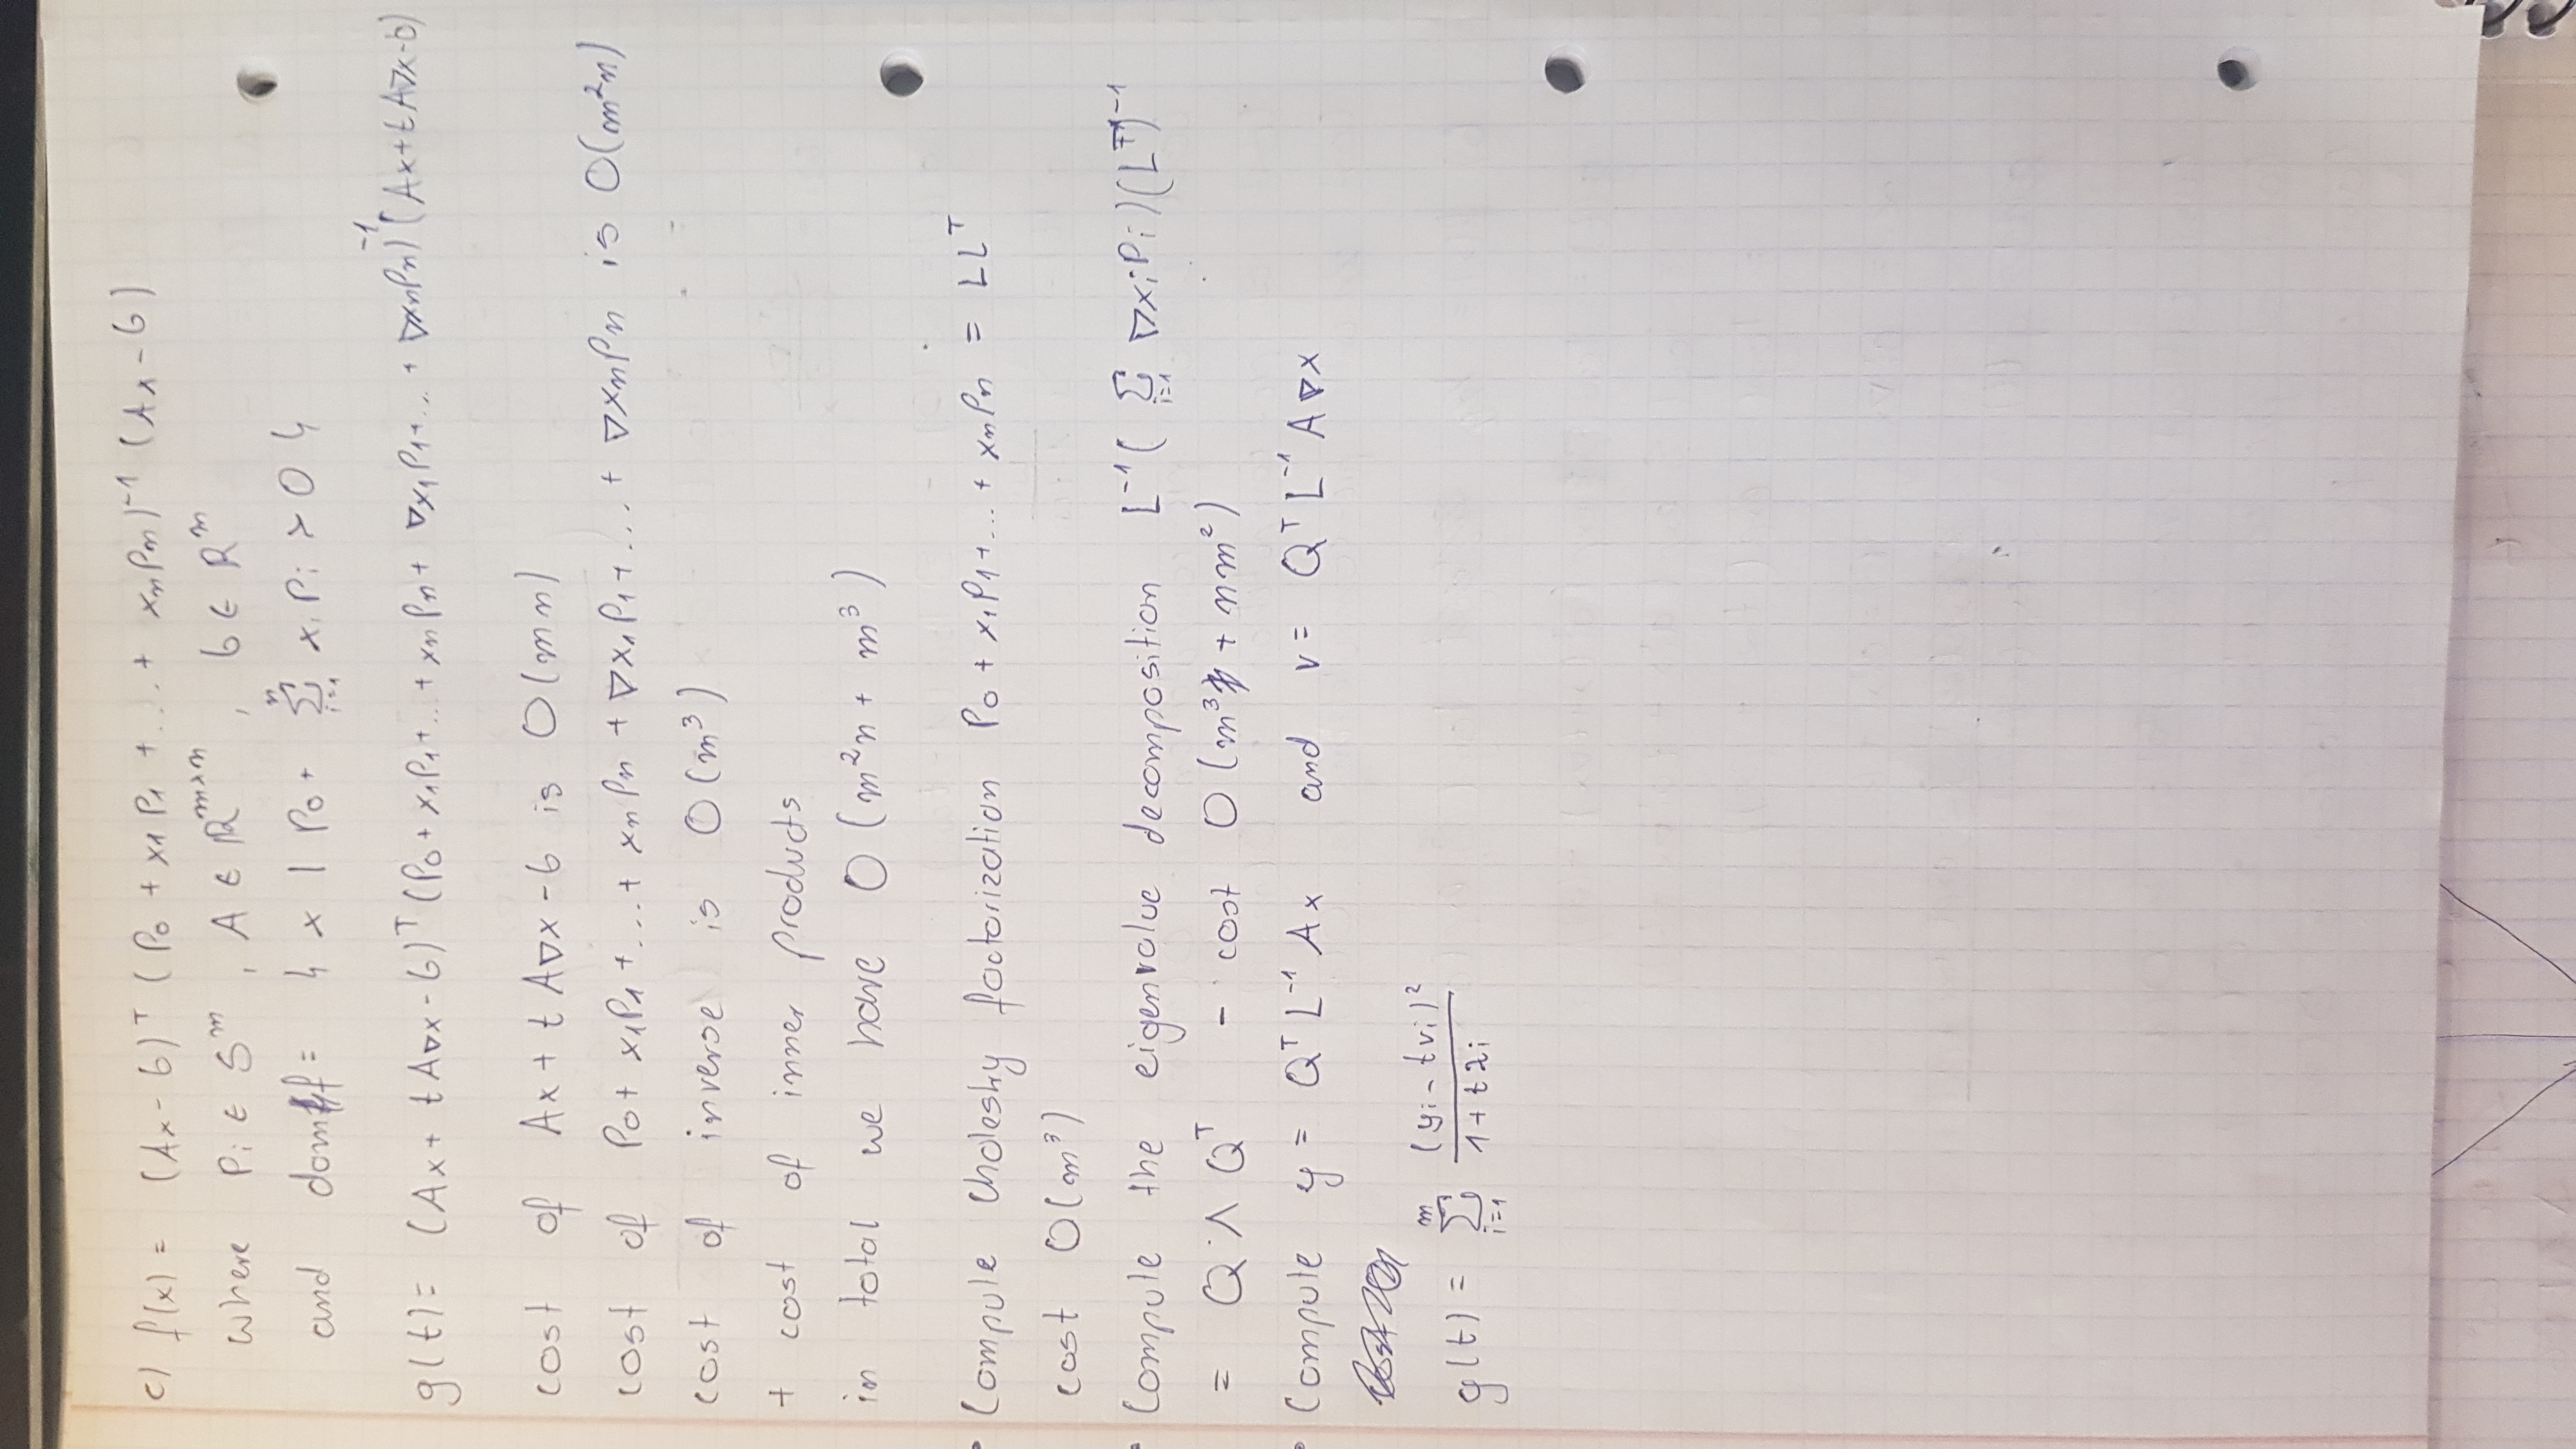 c) f(x) = (Ax - b)ᵀ (P₀ + x₁P₁ + ... + xₙPₙ)⁻¹ (Ax - b)
where Pᵢ ∈ Sᵐ, A ∈ ℝᵐˣⁿ, b ∈ ℝᵐ
and dom f = { x | P₀ + Σᵢ₌₁ⁿ xᵢ Pᵢ ≻ 0 }
g(t) = (Ax + tA∇x - b)ᵀ (P₀ + x₁P₁ + ... + xₙPₙ + ∇x₁P₁ + ... + ∇xₙPₙ)⁻¹ (Ax + tA∇x - b)
cost of Ax + tA∇x - b is O(mn)
cost of P₀ + x₁P₁ + ... + xₙPₙ + ∇x₁P₁ + ... + ∇xₙPₙ is O(m²n)
cost of inverse is O(m³)
+ cost of inner products
in total we have O(m²n + m³)
• Compute Cholesky factorization P₀ + x₁P₁ + ... + xₙPₙ = LLᵀ
cost O(m³)
• Compute the eigenvalue decomposition L⁻¹(Σᵢ₌₁ ∇xᵢPᵢ)(Lᵀ)⁻¹
= QΛQᵀ - cost O(m³ + nm²)
• Compute y = QᵀL⁻¹Ax and v = QᵀL⁻¹A∇x
g(t) = Σᵢ₌₁ᵐ (yᵢ - tvᵢ)² / (1 + tλᵢ)